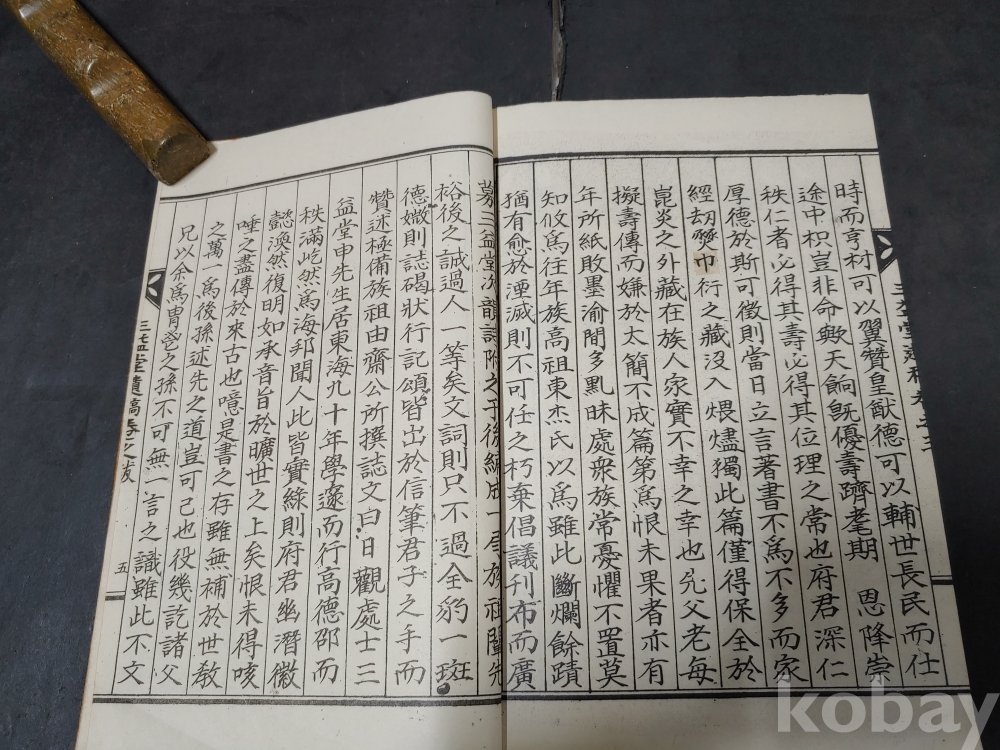 時而亨村可以翼贊皇猷德可以輔世長民而仕
途中枳豈非命歟天餉旣優壽躋耄期 恩降崇
秩仁者必得其壽必得其位理之常也府君深仁
厚德於斯可徵則當日立言著書不爲不多而家
經刼燹巾衍之藏沒入煨燼獨此篇僅得保全於
崑炎之外藏在族人家實不幸之幸也先父老每
擬壽傳而嫌於太簡不成篇第爲恨未果者亦有
年所紙敗墨渝間多點昧處衆族常憂懼不置莫
知攸爲往年族高祖東杰氏以爲雖此斷爛餘蹟
猶有愈於湮滅則不可任之朽棄倡議刊布而廣
募三益堂次韻詩附之于後編成一 族祖 先
裕後之誠過人一等矣文詞則只不過全豹一斑
德媺則誌碣狀行記頌皆出於信筆君子之手而
贊述極備族祖由齋公所撰誌文曰 觀處士三
益堂申先生居東海九十年學邃而行高德邵而
秩滿屹然爲海邦聞人此皆實緣則府君幽潛微
懿渙然復明如承音旨於曠世之上矣恨未得咳
唾之盡傳於來古也噫是書之存雖無補於世敎
之萬一爲後孫述先之道豈可已也役幾訖諸父
兄以余爲胄 之孫不可無一言之識雖此不文
三益堂遺稿卷之 跋
五
kobay